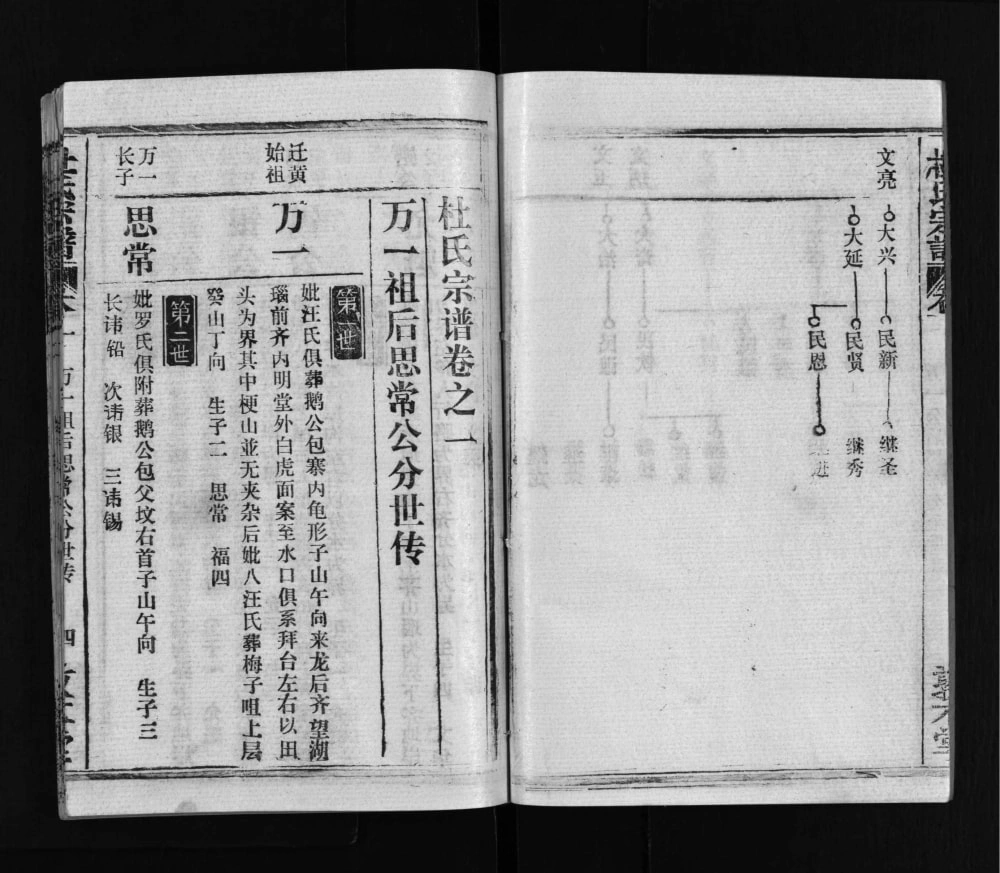 文亮
大兴
民新
继圣
大延
民贤
继秀
民恩
进
杜氏宗谱卷之一
万一祖后思常公分世传
迁黄
始祖
万一
第一世
妣汪氏俱葬鹅公包寨内龟形子山午向来龙后齐望湖
瑙前齐内明堂外白虎面案至水口俱系拜台左右以田
头为界其中梗山並无夹杂后妣八汪氏葬梅子咀上层
癸山丁向 生子二 思常 福四
万一
长子
思常
第二世
妣罗氏俱附葬鹅公包父坟右首子山午向 生子三
长讳铅 次讳银 三讳锡
万一祖后思常公分世传
四